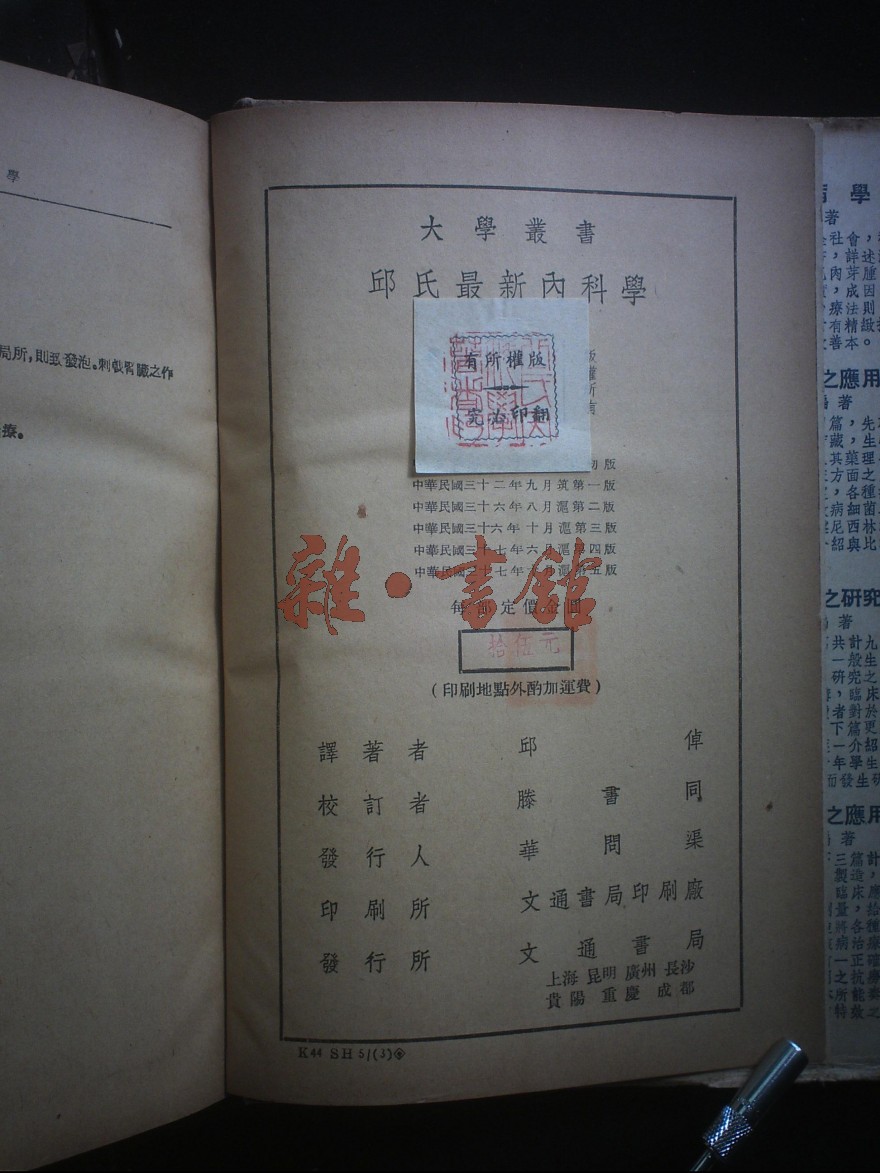 學
局所,則或發泡。刺戟腎臟之作
療。
大學叢書
邱氏最新內科學
版權所有
版權所有
翻印必究
初版
中華民國三十二年九月筑第一版
中華民國三十六年八月滬第二版
中華民國三十六年十月滬第三版
中華民國三十七年六月滬第四版
中華民國三十七年 月滬第五版
每部定價金圓
拾伍元
(印刷地點外酌加運費)
雜·書館
譯著者 邱倬
校訂者 滕書同
發行人 華問渠
印刷所 文通書局印刷廠
發行所 文通書局
上海 昆明 廣州 長沙
貴陽 重慶 成都
K44 SH 5/(3)
學
著
社會,
,詳述
肉芽腫
,成因
療法則
有精緻
善本。
之應用
著
篇,先
藏,生
其藥理
方面之
,各種
病細菌
尼西林
紹與比
之研究
著
共計九
一般生
研究之
,臨床
者對於
下篇更
一介紹
年學生
面發生研
之應用
著
三篇計
製造,
臨床應
量,拾
將各種
病治療
一正確
之抗療
所能與
特效之